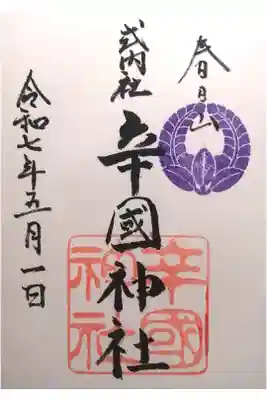 春日山
式内社
辛國神社
辛國神社
令和七年五月一日